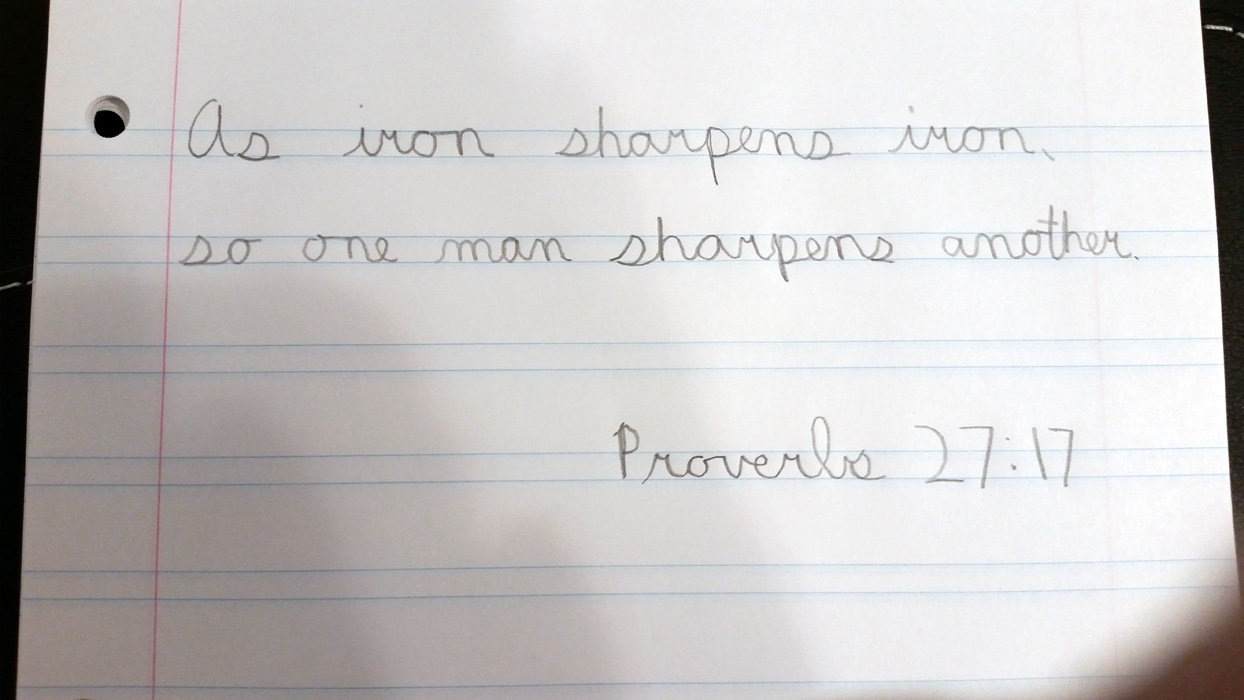 As iron sharpens iron,
so one man sharpens another.
Proverbs 27:17